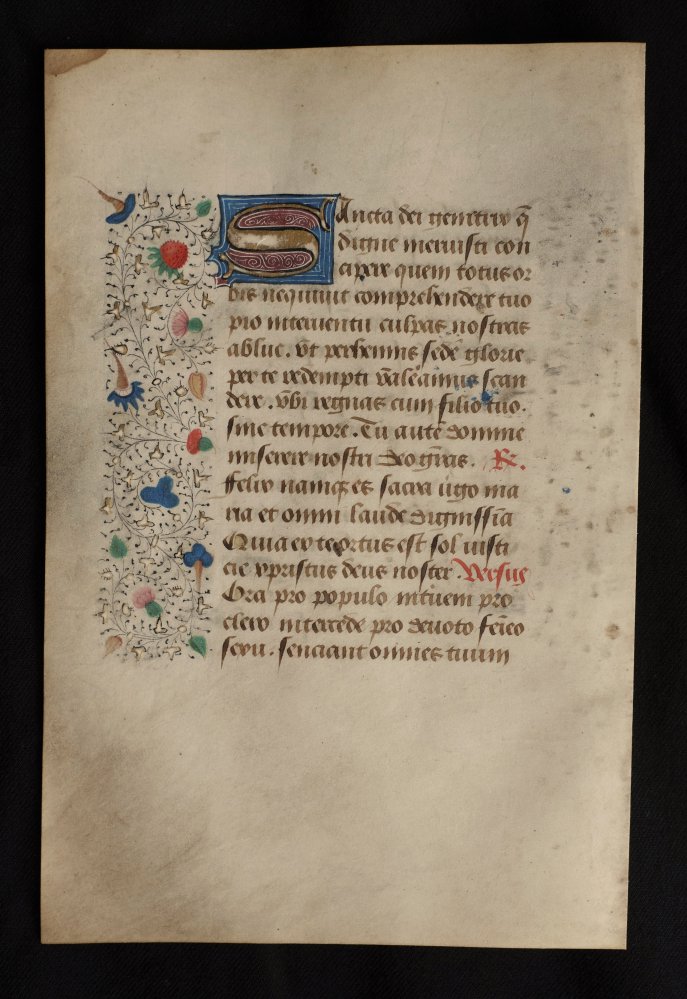 Sancta dei genitrix q̄
digne meruisti con
cipere quem totus or
bis nequiuit comprehendere tuo
pro interuentu culpas nostras
ablue. vt perhennis sedē glorie
per te redempti valeamus scan
dere. vbi regnas cum filio tuo.
sine tempore. Tu autē domine
miserere nostri deo gr̄as. R.
ffelix namq; es sacra uirgo ma
ria et omni laude dignissīa
Quia ex te ortus est sol iusti
cie xpristus deus noster. Versus
Ora pro populo interuem pro
clero intercede pro deuoto femeo
sexu. senciant omnes tuum